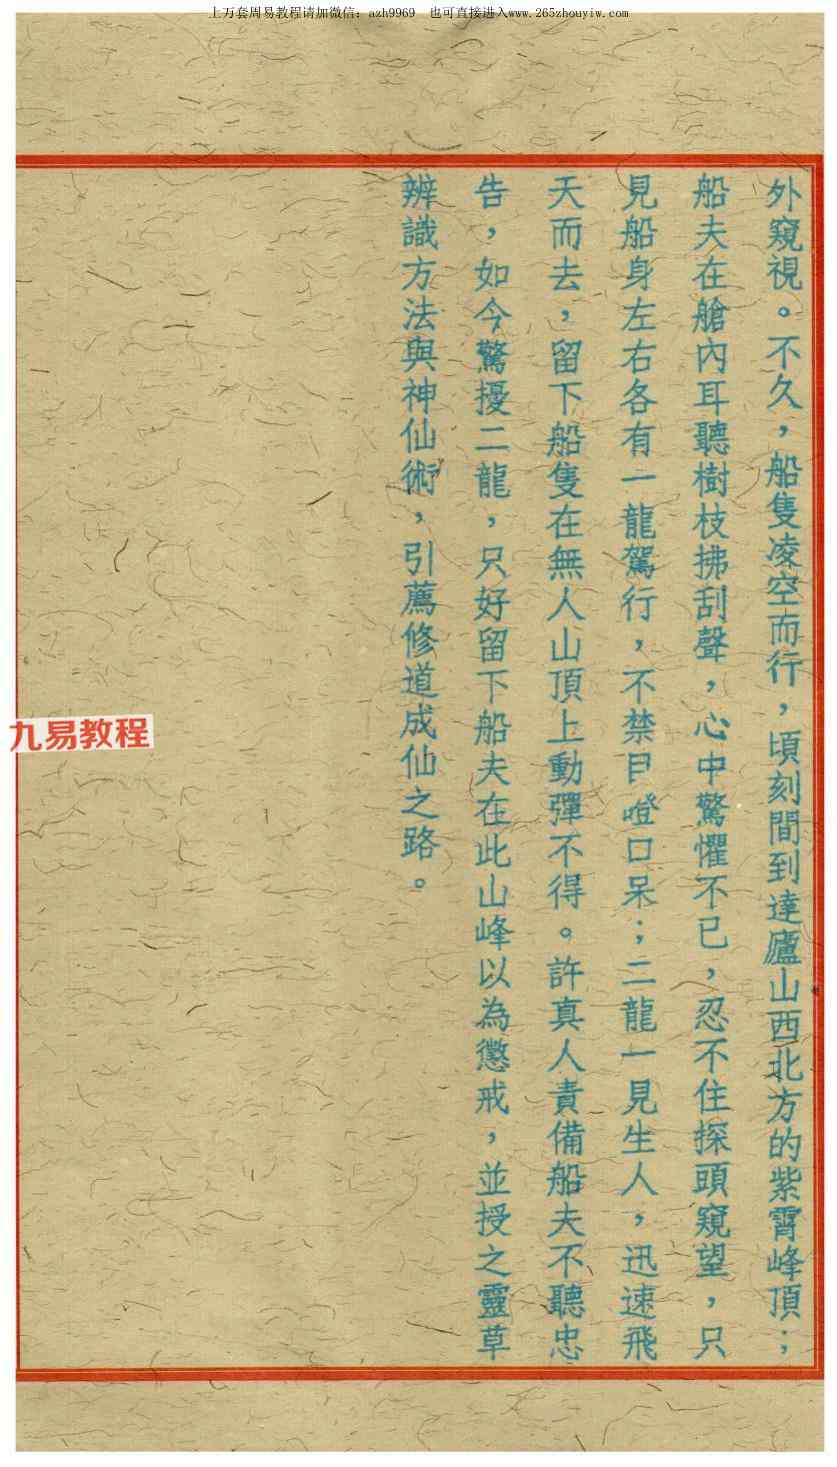 上万套周易教程请加微信：azh9969 也可直接进入www.265zhouyiw.com
外窺視。不久，船隻凌空而行，頃刻間到達廬山西北方的紫霄峰頂；
船夫在艙內耳聽樹枝拂刮聲，心中驚懼不已，忍不住探頭窺望，只
見船身左右各有一龍駕行，不禁目瞪口呆；二龍一見生人，迅速飛
天而去，留下船隻在無人山頂上動彈不得。許真人責備船夫不聽忠
告，如今驚擾二龍，只好留下船夫在此山峰以為懲戒，並授之靈草
辨識方法與神仙術，引薦修道成仙之路。
九易教程